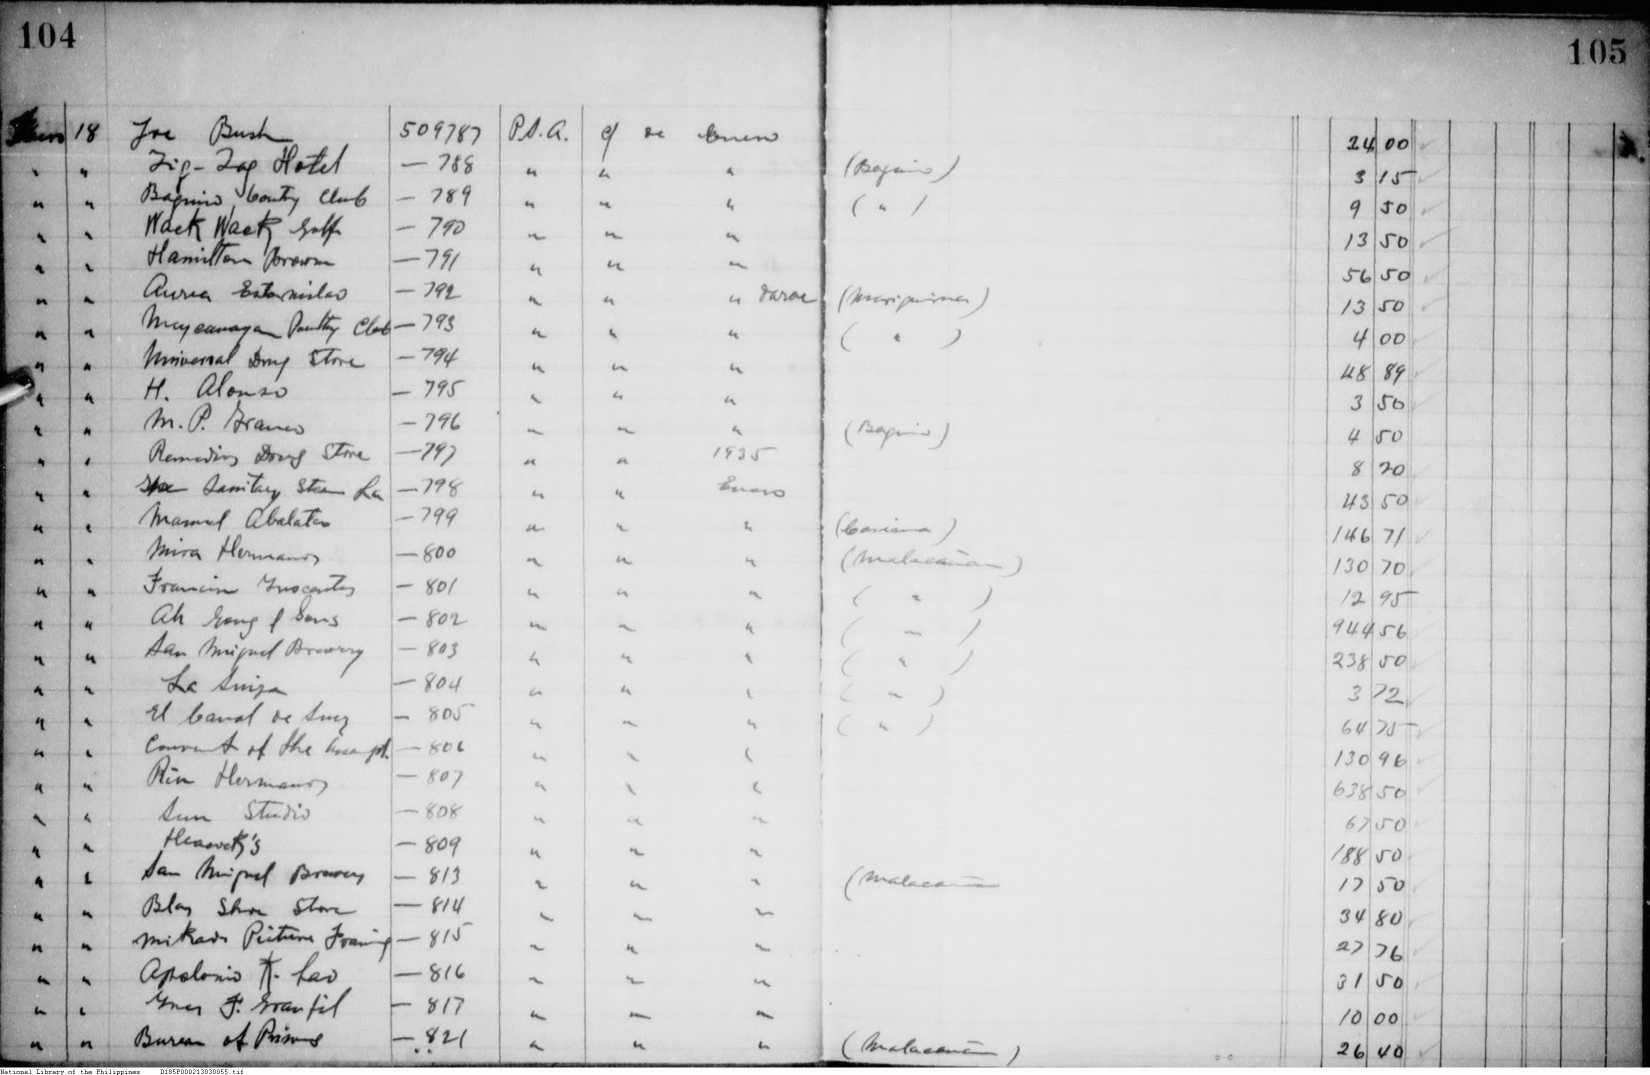 104
105
18 Joe Bush 509787 P.S.A. c/ de Enero 24 00
" " Zig-Zag Hotel — 788 " " " (Baguio) 3 15
" " Baguio Contry Club — 789 " " " ( " ) 9 50
" " Wack Wack Golf — 790 " " " 13 50
" " Hamilton Brown — 791 " " " 56 50
" " Aurea Estanislao — 792 " " " (Mariquina) 13 50
" " Maycauayan Poultry Club — 793 " " " ( " ) 4 00
" " Universal Drug Store — 794 " " " 48 89
" " H. Alonso — 795 " " " 3 50
" " M. P. Franco — 796 " " " (Baguio) 4 50
" " Remedios Drug Store — 797 " " 1935 8 20
" " Sanitary Steam La — 798 " " Enero 43 50
" " Manuel Abalates — 799 " " " 146 71
" " Mira Hermanos — 800 " " " (Malacañan) 130 70
" " — 801 " " " ( " ) 12 95
" " Ah Gong & Sons — 802 " " " ( " ) 944 56
" " San Miguel Brewery — 803 " " " ( " ) 238 50
" " La Suiza — 804 " " " ( " ) 3 72
" " El Canal de Suez — 805 " " " ( " ) 64 75
" " Convent of the Assumpt. — 806 " " " 130 96
" " Riu Hermanos — 807 " " " 638 50
" " Sun Studio — 808 " " " 67 50
" " Heacock's — 809 " " " 188 50
" " San Miguel Brewery — 813 " " " (Malacañan 17 50
" " Blas Shoe Store — 814 " " " 34 80
" " Mikado Picture Framing — 815 " " " 27 76
" " Apolonio K. Lao — 816 " " " 31 50
" " — 817 " " " 10 00
" " Bureau of Prisons — 821 " " " (Malacañan) 26 40
National Library of the Philippines D185P000213030055.tif